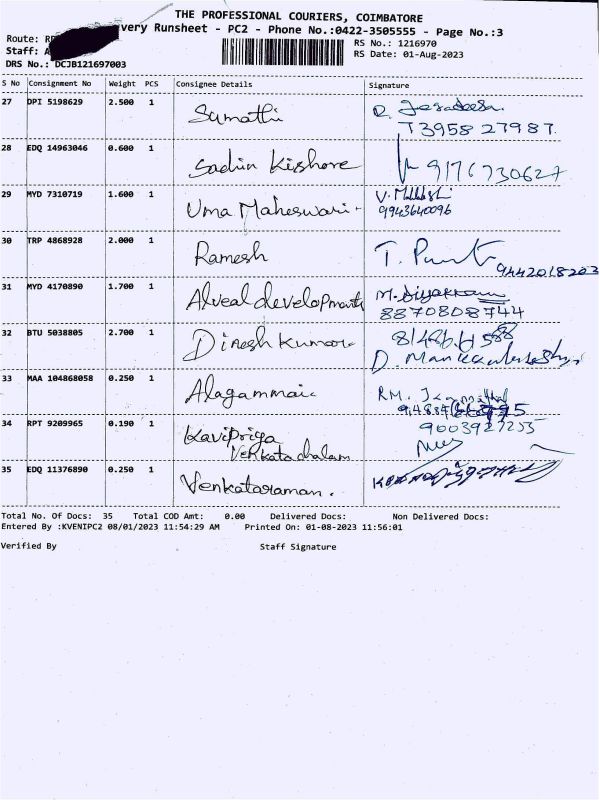 THE PROFESSIONAL COURIERS, COIMBATORE
very Runsheet - PC2 - Phone No.:0422-3505555 - Page No.:3
Route: R
Staff: A
RS No.: 1216970
RS Date: 01-Aug-2023
DRS No.: DCJB121697003
S No Consignment No Weight PCS Consignee Details Signature
27 DPI 5198629 2.500 1 Sumathi
T3958 27987.
28 EDQ 14963046 0.600 1 Sadhin Kishore 9176730627
29 MYD 7310719 1.600 1 Uma Maheswari- V.
9943640096
30 TRP 4868928 2.000 1 Ramesh T.
9442018203
31 MYD 4170890 1.700 1 Alveal developments M.
8870808744
32 BTU 5038805 2.700 1 Dinesh Kumar
D.
33 MAA 104868058 0.250 1 Alagammai RM.
34 RPT 9209965 0.190 1 Kavipriya 9003927255
Venkatachalam
35 EDQ 11376890 0.250 1 Venkataraman.
Total No. Of Docs: 35 Total COD Amt: 0.00 Delivered Docs: Non Delivered Docs:
Entered By :KVENIPC2 08/01/2023 11:54:29 AM Printed On: 01-08-2023 11:56:01
Verified By Staff Signature